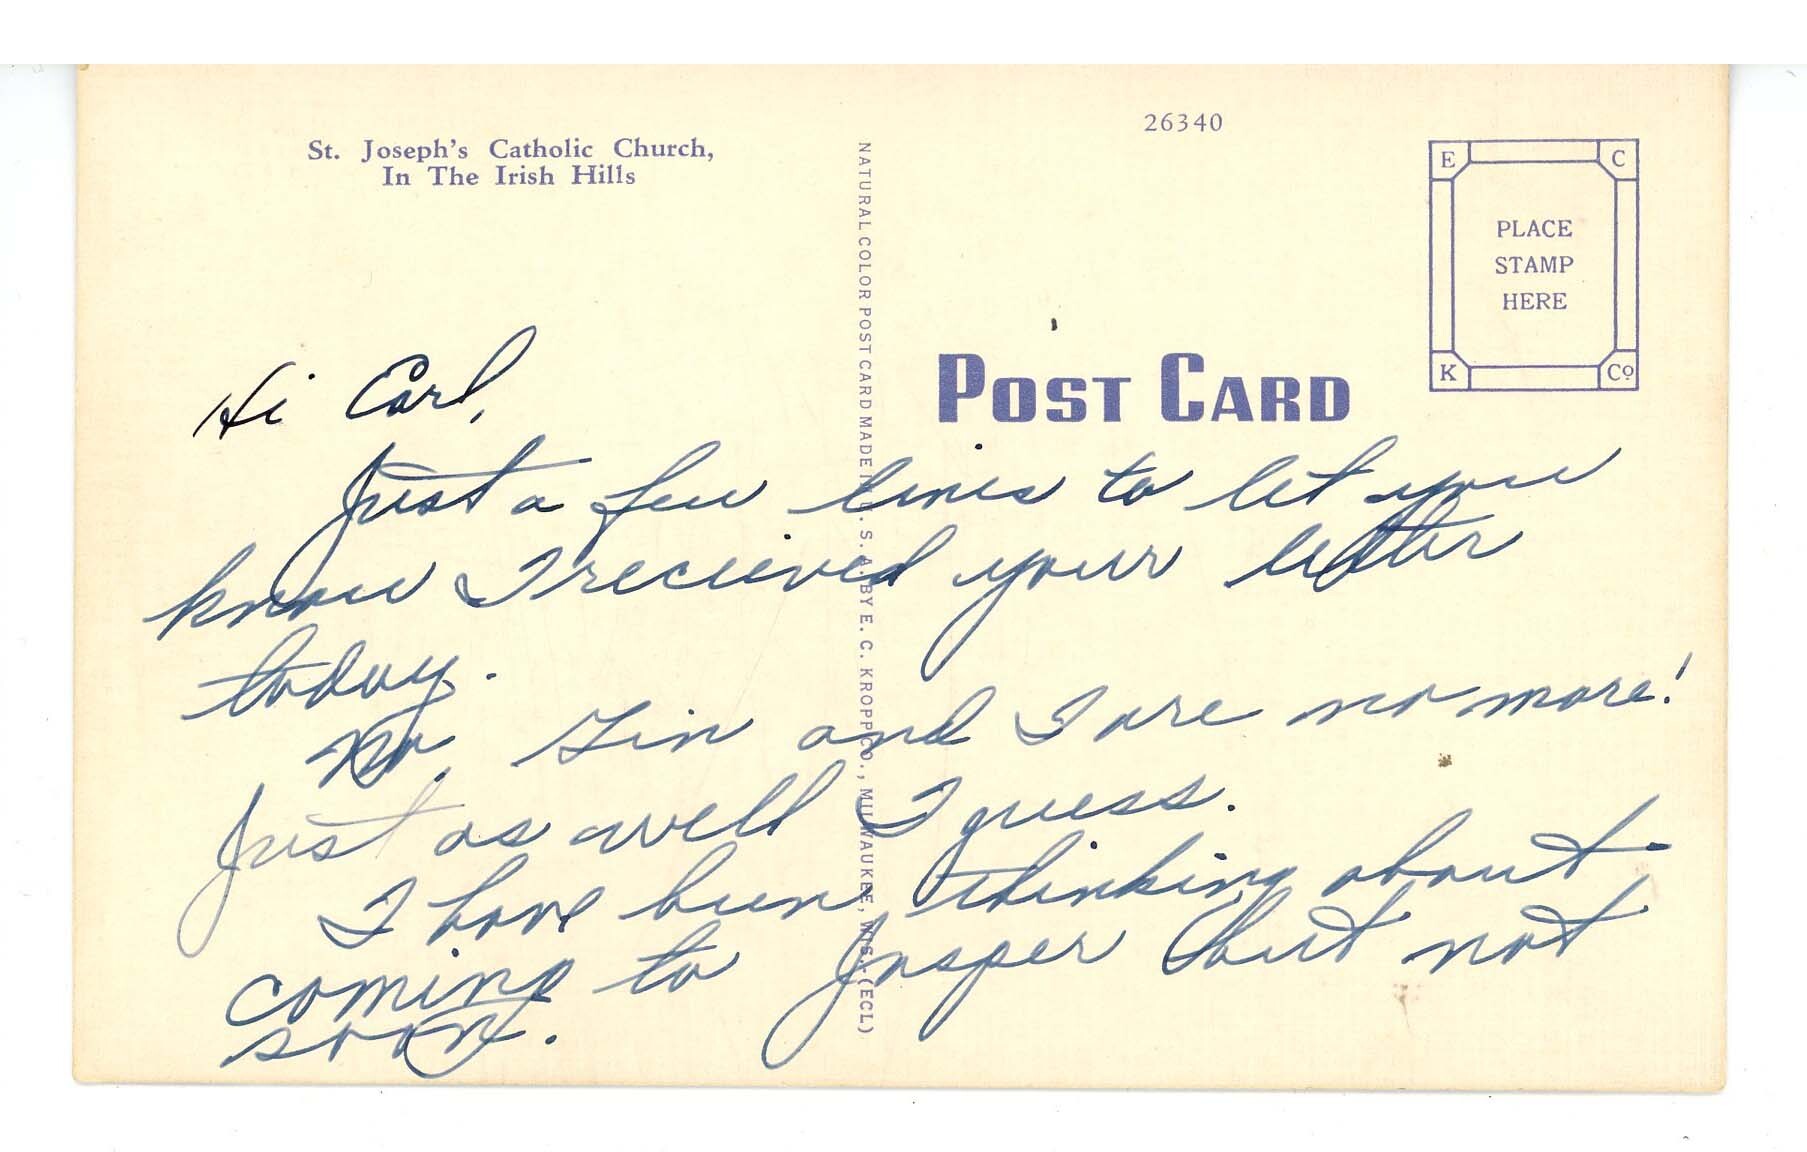 26340
St. Joseph's Catholic Church,
In The Irish Hills
NATURAL COLOR POST CARD MADE IN U. S. A. BY E. C. KROPP CO., MILWAUKEE, WIS.-(ECL)
E C
PLACE
STAMP
HERE
K Co
POST CARD
Hi Earl,
Just a few lines to let you
know I recieved your letter
today.
No, Lin and I are no more!
Just as well I guess.
I have been thinking about
coming to Jasper but not
soon.